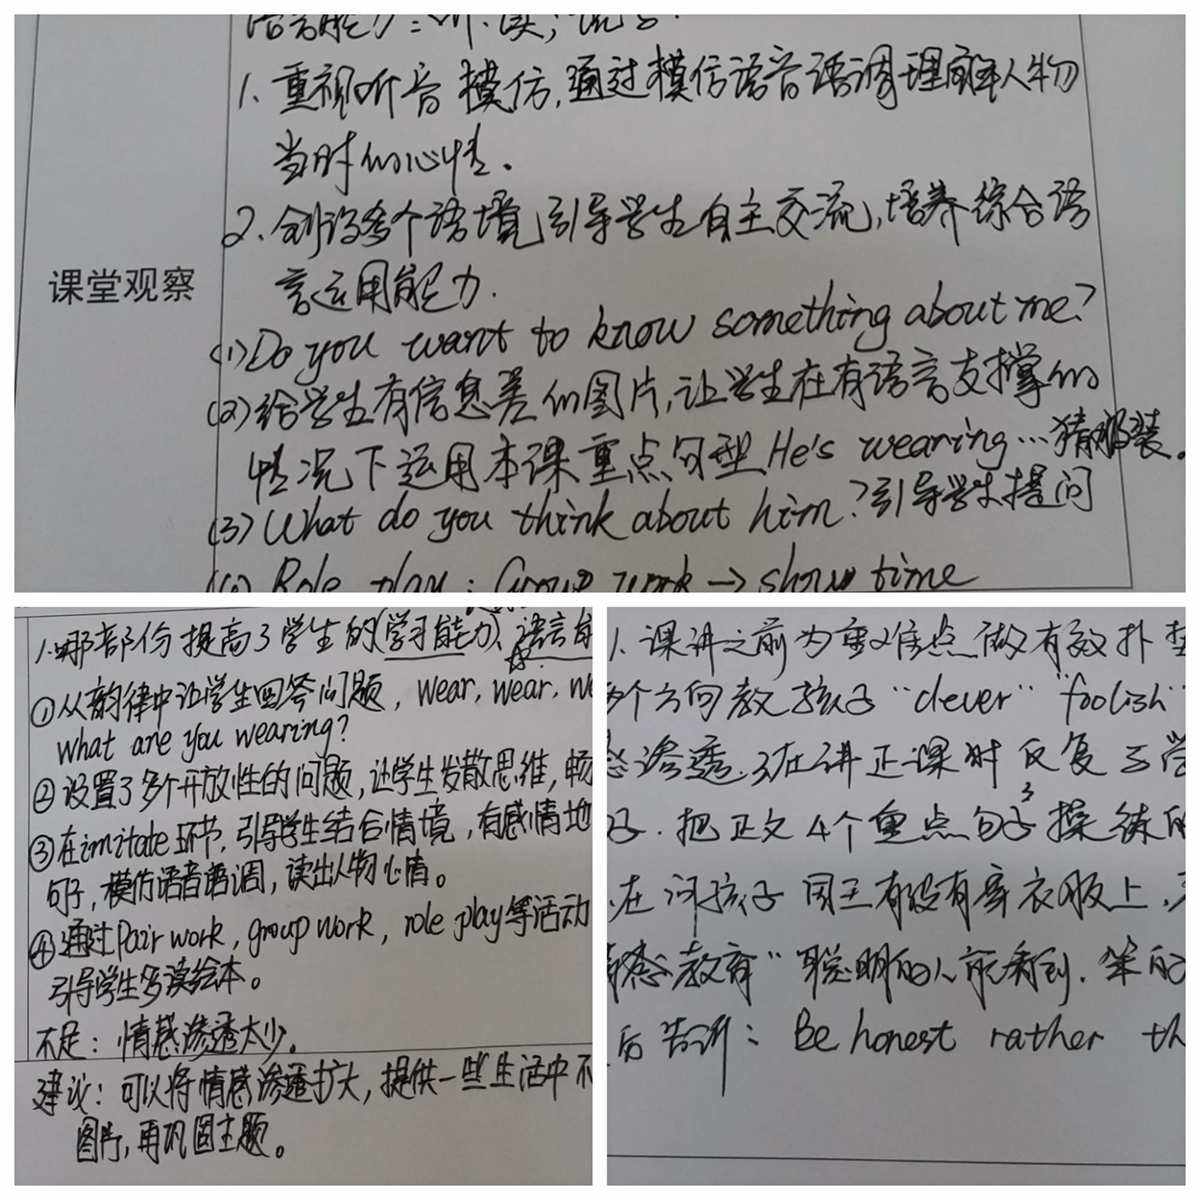 语言能力：听、读，说
1. 重视听音模仿，通过模仿语音语调理解人物
当时的心情。
2. 创设多个语境，引导学生自主交流，培养综合语
言运用能力.
课堂观察
(1) Do you want to know something about me?
(2) 给学生有信息差的图片，让学生在有语言支撑的
情况下运用本课重点句型He's wearing…猜服装。
(3) What do you think about him? 引导学生提问
Role play: Group work → show time
1.哪部份提高了学生的(学习能力、语言
①从韵律中让学生回答问题，wear, wear,
what are you wearing?
②设置了多个开放性的问题，让学生发散思维，畅
③在imitate环节，引导学生结合情境，有感情地
句子，模仿语音语调，读出人物心情。
④通过Pair work, group work, role play等活动
引导学生多读绘本。
不足：情感渗透太少。
建议：可以将情感渗透扩大，提供一些生活中不
图片，再巩固主题。
1. 课讲之前为重难点做有效扑垫
多个方向教孩子"clever" "foolish"
渗透. 在讲正课时反复与学
子. 把正文4个重点句子操练的
在问孩子国王有没有穿衣服上,
情感教育"聪明的人能看到. 笨的
后告诉: Be honest rather th